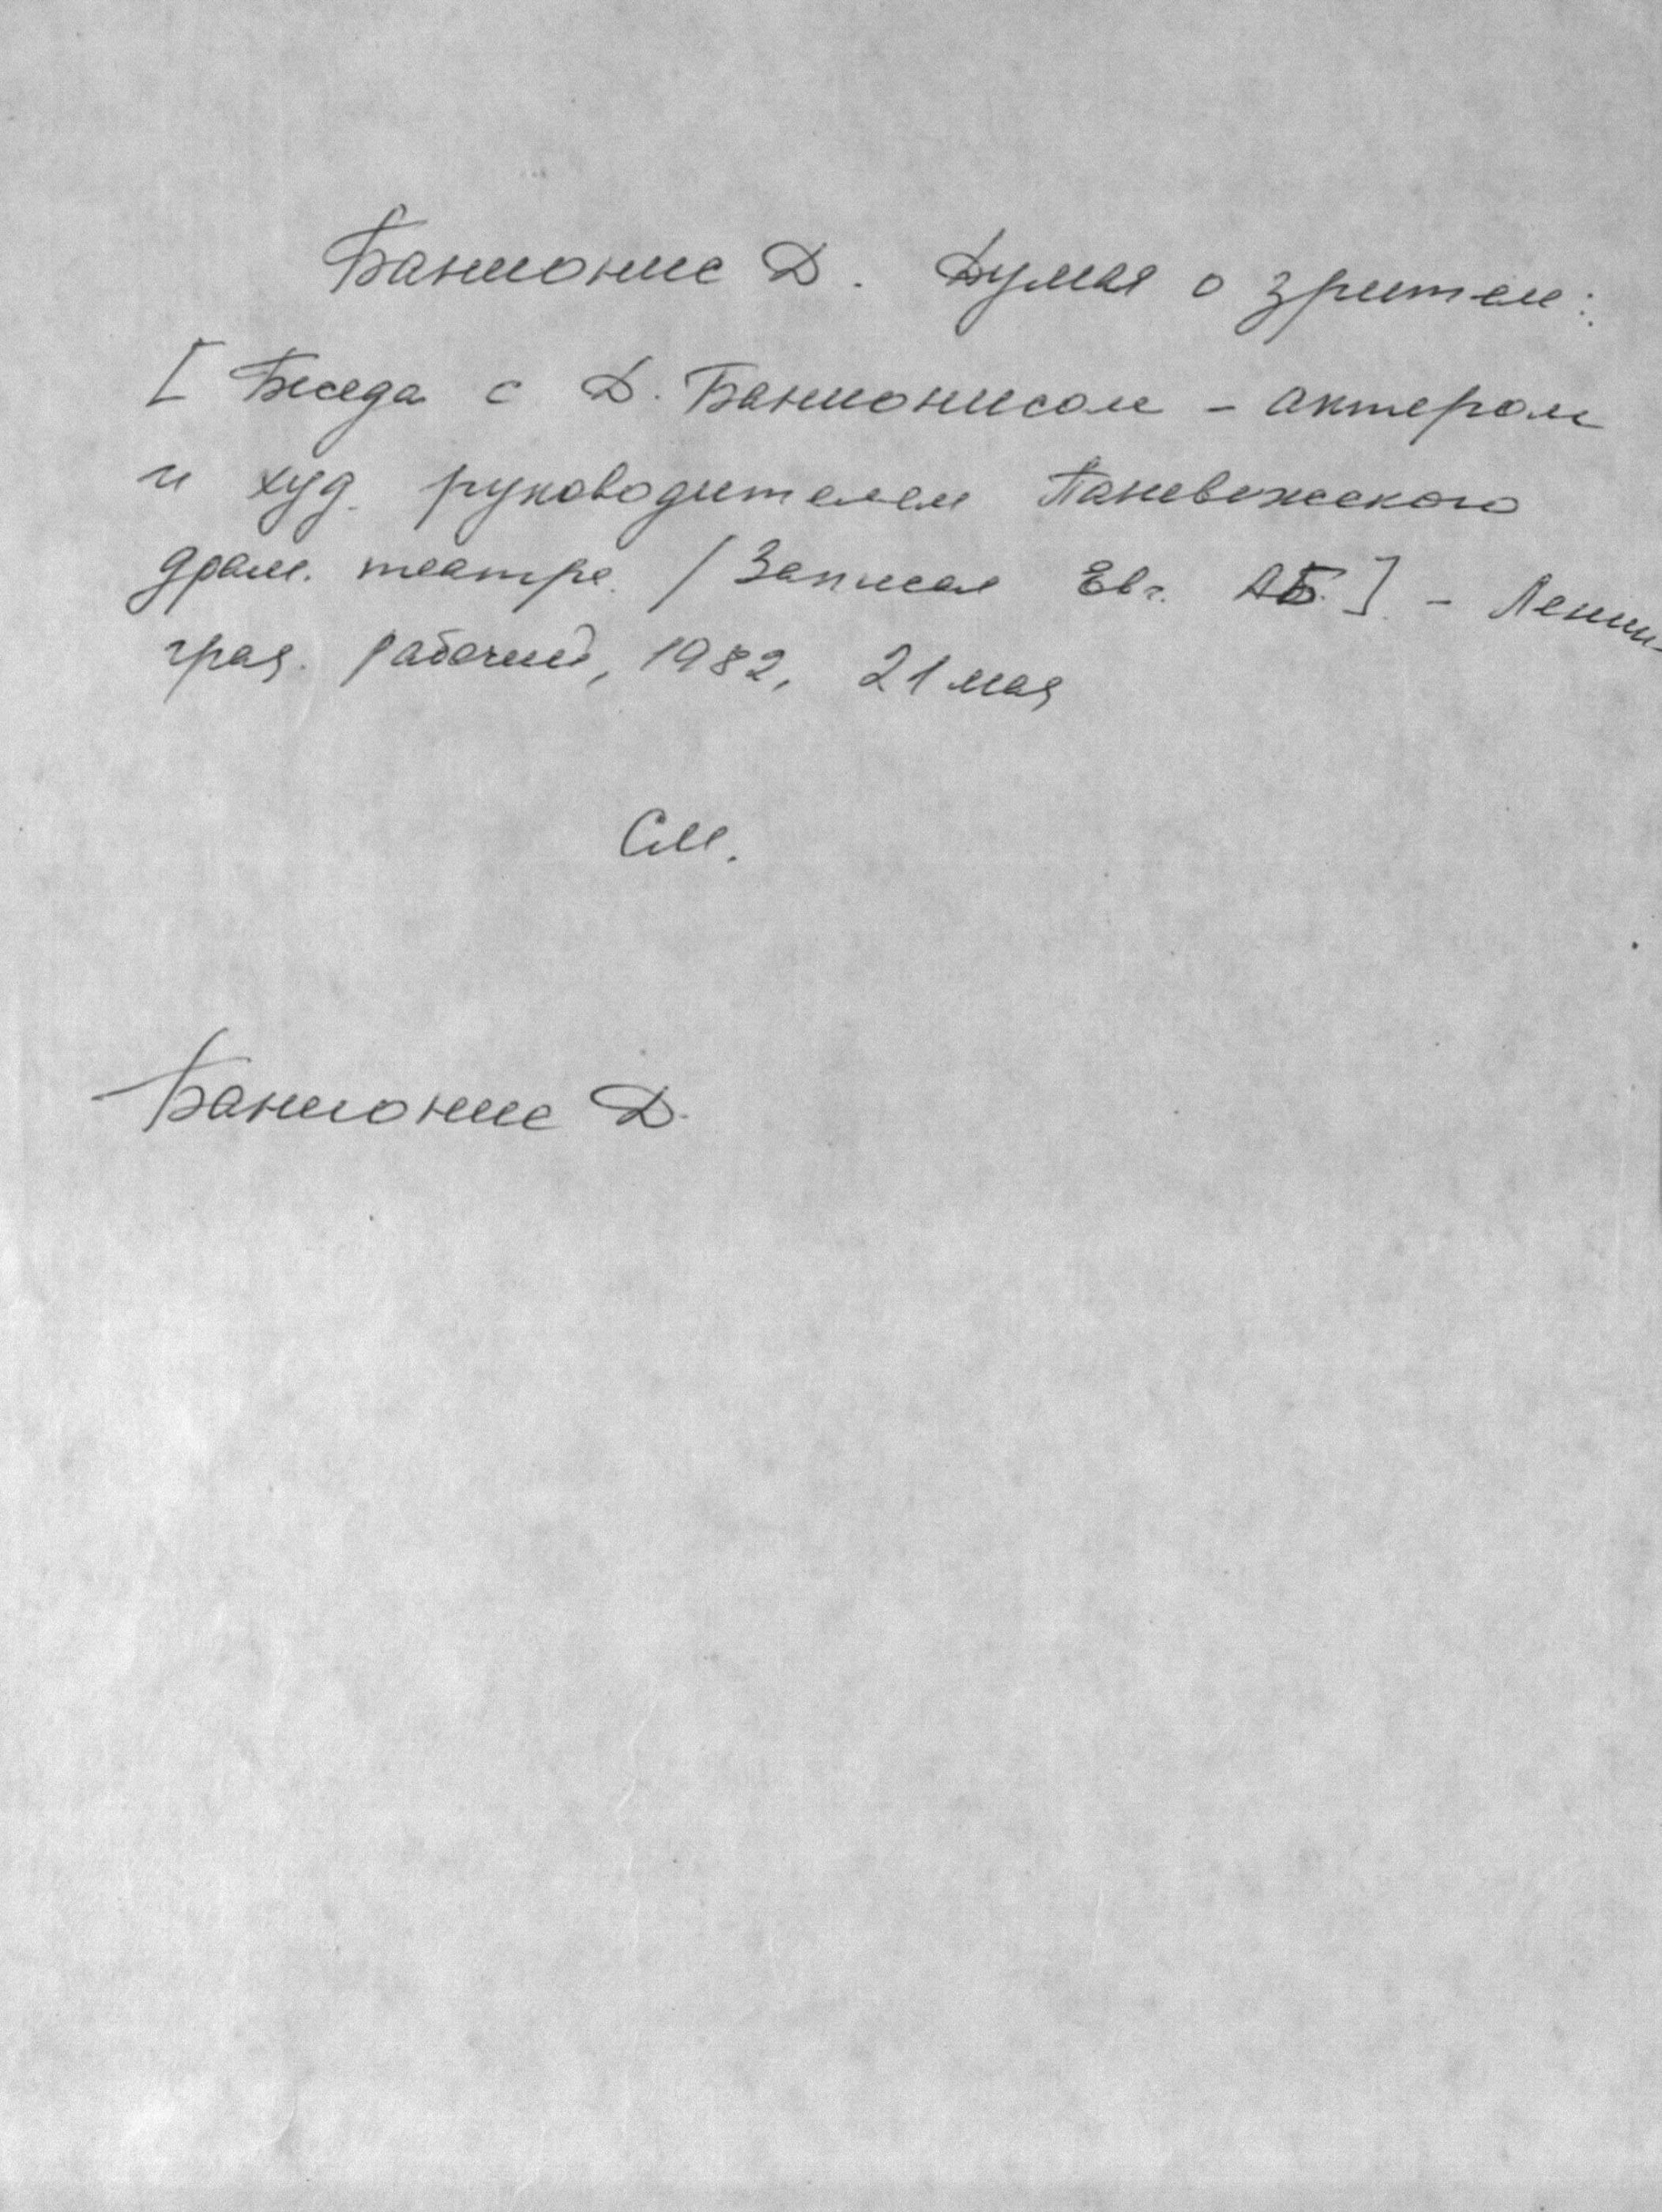 Банионис Д. Думая о зрителе:
[Беседа с Д. Банионисом - актером
и худ. руководителем Паневежского
драм. театра. / Записал Евг. АБ.]. - Ленин-
град. рабочий, 1982, 21 мая
См.
Банионис Д.